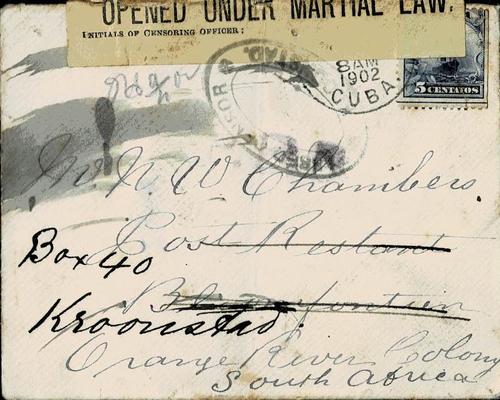 OPENED UNDER MARTIAL LAW.
INITIALS OF CENSORING OFFICER:
8AM
1902
CUBA
5 CENTAVOS
Mr. N W Chambers
Post Restant
Box 40
Bloemfontien
Kroonstad.
Orange River Colony
South Africa